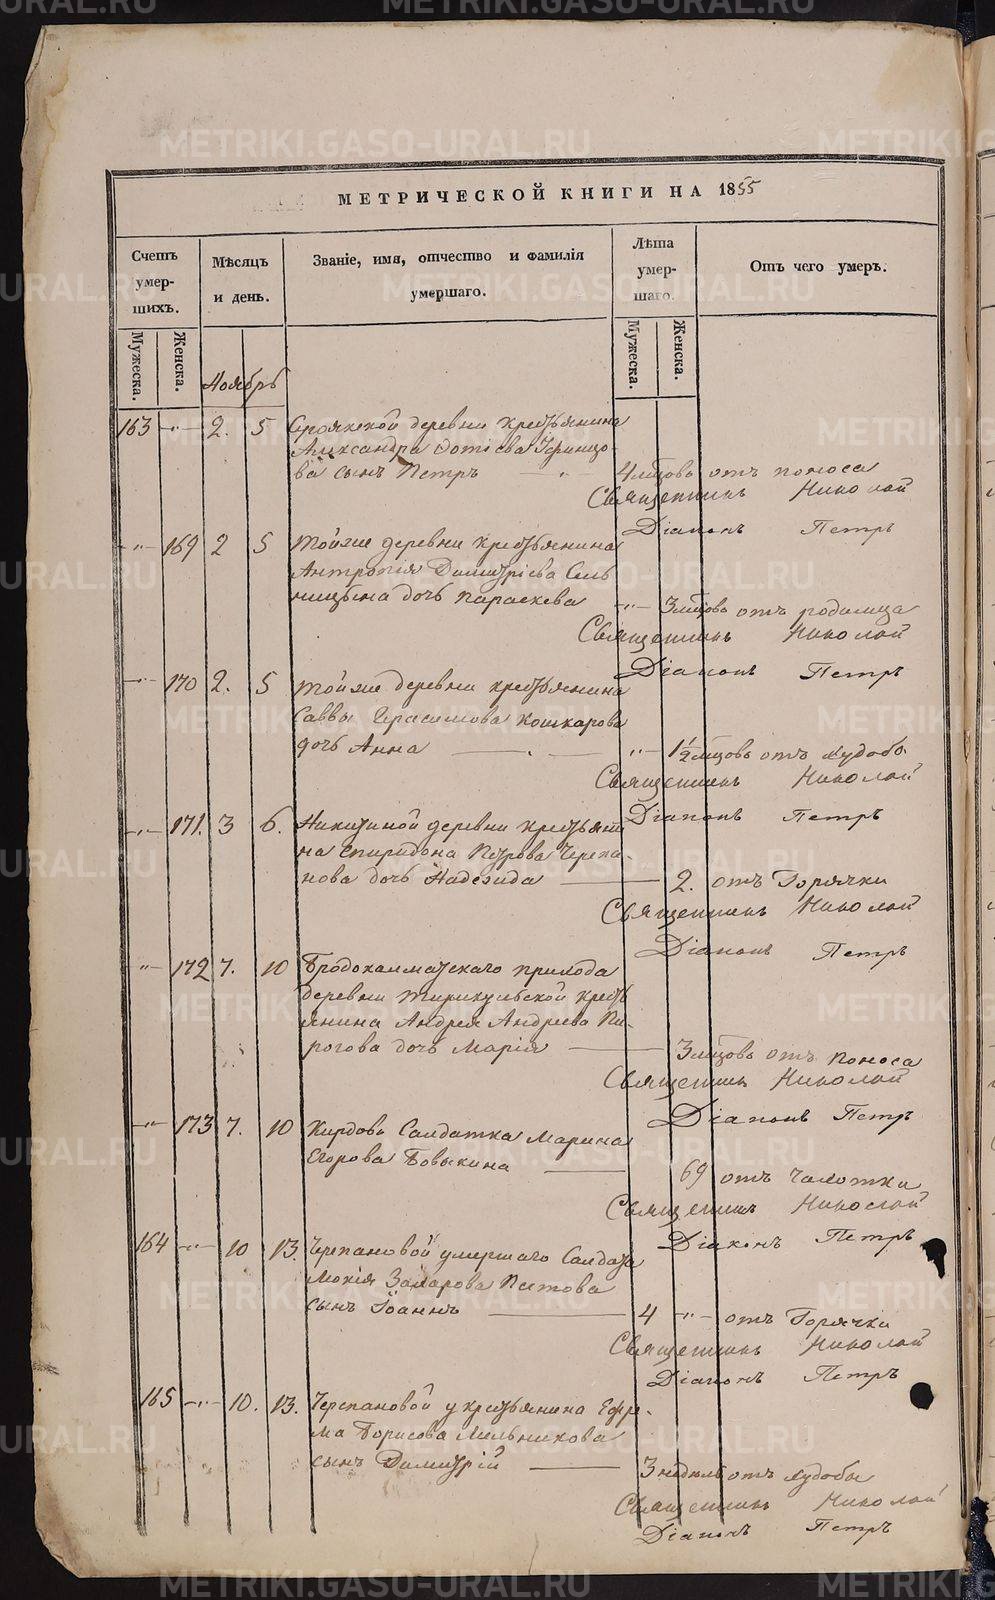 МЕТРИЧЕСКОЙ КНИГИ НА 1855
Счетъ умершихъ.
Мѣсяцъ и день.
Званіе, имя, отчество и фамилія умершаго.
Лѣта умершаго.
Отъ чего умеръ.
Мужеска.
Женска.
Мужеска.
Женска.
Ноябрь
163 -"- 2. 5 деревни крестьянина
Александра Фотіева
ва сынъ Петръ -"- 4 мцовъ отъ поноса
Священникъ Николай
Діаконъ Петръ
-"- 169 2 5 Тойже деревни крестьянина
Антропія Димитріева
дочь Параскева -"- 3 мцовъ отъ родимца
Священникъ Николай
Діаконъ Петръ
-"- 170 2. 5 Тойже деревни крестьянина
Саввы Герасимова Кошкарова
дочь Анна -"- 1 1/2 мцовъ отъ худобы
Священникъ Николай
Діаконъ Петръ
-"- 171. 3 6. Никитиной деревни крестьяни
на Спиридона Петрова Черепа-
нова дочь Надежда 2. отъ Горячки
Священникъ Николай
Діаконъ Петръ
-"- 172 7. 10 Бродокалматскаго прихода
деревни крестъ
янина Андрея Андреева Пи-
рогова дочь Марія 3 мцовъ отъ поноса
Священникъ Николай
Діаконъ Петръ
-"- 173 7. 10 Кирдова Салдатка Марина
Егорова Бовыкина 69 отъ чахотки
Священникъ Николай
Діаконъ Петръ
164 -"- 10 13. Черепановой умершаго Салдата
Мокія Захарова Пестова
сынъ Іоаннъ 4 -"- отъ Горячки
Священникъ Николай
Діаконъ Петръ
165 -"- 10. 13. Черепановой у крестьянина Ефре-
ма Борисова Мельникова
сынъ Димитрій 3 недель отъ худобы
Священникъ Николай
Діаконъ Петръ
METRIKI.GASO-URAL.RU